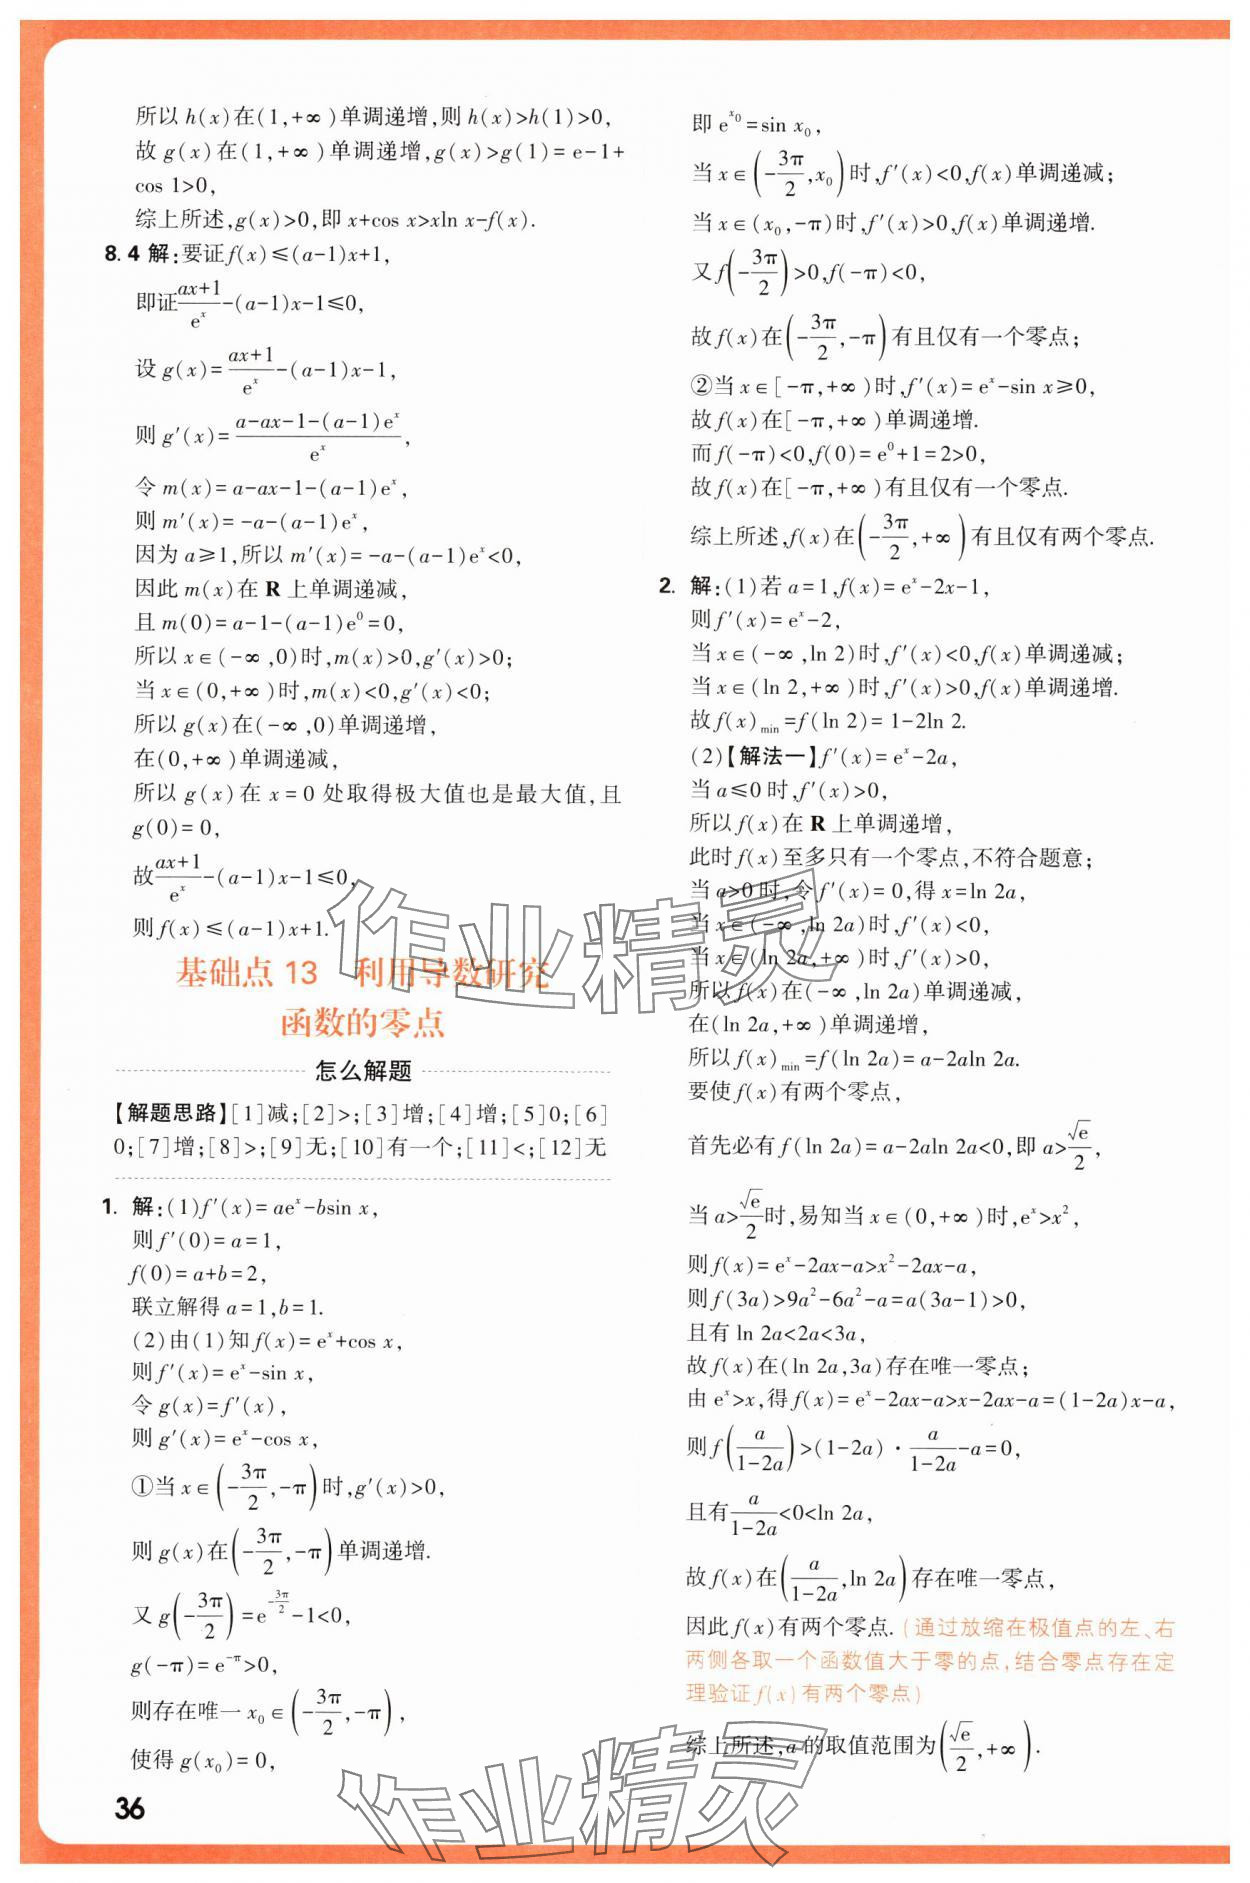 所以 h(x)在(1,+∞)单调递增,则 h(x)>h(1)>0,
故 g(x)在(1,+∞)单调递增,g(x)>g(1)=e-1+
cos 1>0,
综上所述,g(x)>0,即 x+cos x>xln x-f(x).
8.4 解:要证 f(x)≤(a-1)x+1,
即证(ax+1)/e^x-(a-1)x-1≤0,
设 g(x)=(ax+1)/e^x-(a-1)x-1,
则 g′(x)=(a-ax-1-(a-1)e^x)/e^x,
令 m(x)=a-ax-1-(a-1)e^x,
则 m′(x)=-a-(a-1)e^x,
因为 a≥1,所以 m′(x)=-a-(a-1)e^x<0,
因此 m(x)在 R 上单调递减,
且 m(0)=a-1-(a-1)e^0=0,
所以 x∈(-∞,0)时,m(x)>0,g′(x)>0;
当 x∈(0,+∞)时,m(x)<0,g′(x)<0;
所以 g(x)在(-∞,0)单调递增,
在(0,+∞)单调递减,
所以 g(x)在 x=0 处取得极大值也是最大值,且
g(0)=0,
故(ax+1)/e^x-(a-1)x-1≤0,
则 f(x)≤(a-1)x+1.
基础点 13 利用导数研究
函数的零点
怎么解题
【解题思路】[1]减;[2]>;[3]增;[4]增;[5]0;[6]
0;[7]增;[8]>;[9]无;[10]有一个;[11]<;[12]无
1. 解:(1)f′(x)=ae^x-bsin x,
则 f′(0)=a=1,
f(0)=a+b=2,
联立解得 a=1,b=1.
(2)由(1)知 f(x)=e^x+cos x,
则 f′(x)=e^x-sin x,
令 g(x)=f′(x),
则 g′(x)=e^x-cos x,
①当 x∈(-3π/2,-π)时,g′(x)>0,
则 g(x)在(-3π/2,-π)单调递增.
又 g(-3π/2)=e^(-3π/2)-1<0,
g(-π)=e^(-π)>0,
则存在唯一 x₀∈(-3π/2,-π),
使得 g(x₀)=0,
36
即 e^(x₀)=sin x₀,
当 x∈(-3π/2,x₀)时,f′(x)<0,f(x)单调递减;
当 x∈(x₀,-π)时,f′(x)>0,f(x)单调递增.
又 f(-3π/2)>0,f(-π)<0,
故 f(x)在(-3π/2,-π)有且仅有一个零点;
②当 x∈[-π,+∞)时,f′(x)=e^x-sin x≥0,
故 f(x)在[-π,+∞)单调递增.
而 f(-π)<0,f(0)=e^0+1=2>0,
故 f(x)在[-π,+∞)有且仅有一个零点.
综上所述,f(x)在(-3π/2,+∞)有且仅有两个零点.
2. 解:(1)若 a=1,f(x)=e^x-2x-1,
则 f′(x)=e^x-2,
当 x∈(-∞,ln 2)时,f′(x)<0,f(x)单调递减;
当 x∈(ln 2,+∞)时,f′(x)>0,f(x)单调递增.
故 f(x)min=f(ln 2)=1-2ln 2.
(2)【解法一】f′(x)=e^x-2a,
当 a≤0 时,f′(x)>0,
所以 f(x)在 R 上单调递增,
此时 f(x)至多只有一个零点,不符合题意;
当 a>0 时,令 f′(x)=0,得 x=ln 2a,
当 x∈(-∞,ln 2a)时,f′(x)<0,
当 x∈(ln 2a,+∞)时,f′(x)>0,
所以 f(x)在(-∞,ln 2a)单调递减,
在(ln 2a,+∞)单调递增,
所以 f(x)min=f(ln 2a)=a-2aln 2a.
要使 f(x)有两个零点,
首先必有 f(ln 2a)=a-2aln 2a<0,即 a>√e/2,
当 a>√e/2时,易知当 x∈(0,+∞)时,e^x>x²,
则 f(x)=e^x-2ax-a>x²-2ax-a,
则 f(3a)>9a²-6a²-a=a(3a-1)>0,
且有 ln 2a<2a<3a,
故 f(x)在(ln 2a,3a)存在唯一零点;
由 e^x>x,得 f(x)=e^x-2ax-a>x-2ax-a=(1-2a)x-a,
则 f(a/(1-2a))>(1-2a)·a/(1-2a)-a=0,
且有 a/(1-2a)<0<ln 2a,
故 f(x)在(a/(1-2a),ln 2a)存在唯一零点,
因此 f(x)有两个零点.(通过放缩在极值点的左、右
两侧各取一个函数值大于零的点,结合零点存在定
理验证 f(x)有两个零点)
综上所述,a 的取值范围为(√e/2,+∞).
作业精灵
作业精灵